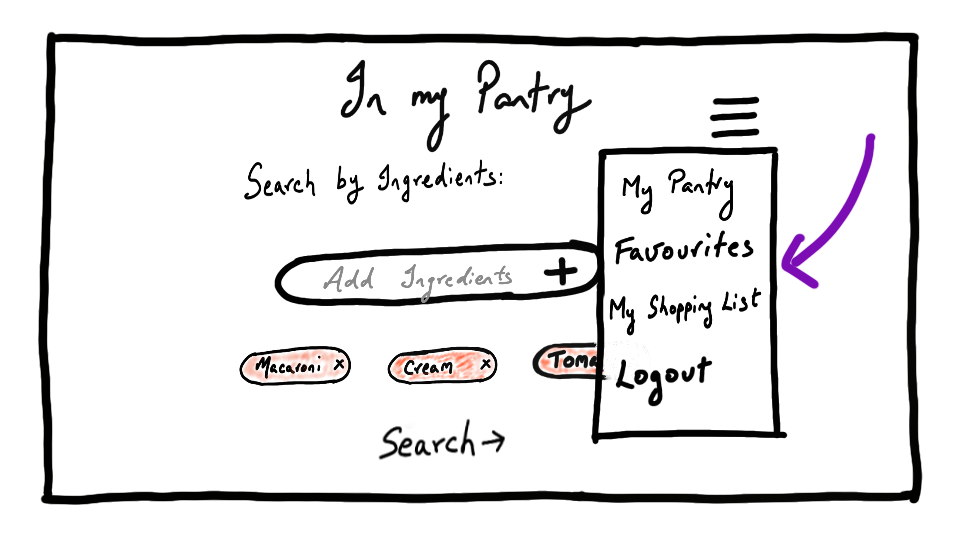 In my Pantry
Search by Ingredients:
Add Ingredients +
Macaroni x
Cream x
Toma
Search →
My Pantry
Favourites
My Shopping List
Logout